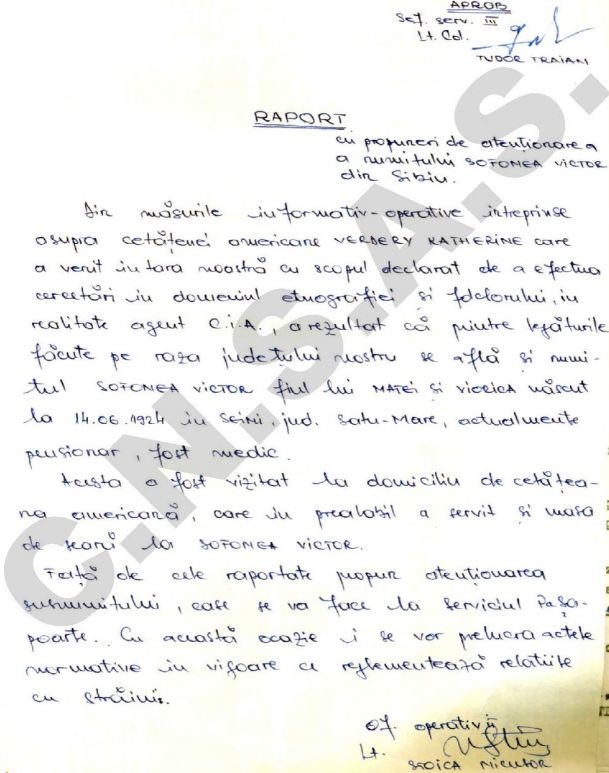 APROB
Șef. serv. III
Lt. Col.
TUDOR TRAIAN
RAPORT
cu propuneri de atenționare a
a numitului SOFONEA VICTOR
din Sibiu.
Din măsurile informativ-operative intreprinse
asupra cetățenei americane VERDERY KATHERINE care
a venit in tara noastră cu scopul declarat de a efectua
cercetări in domeniul etnografiei si folclorului, in
realitate agent C.I.A., a rezultat că printre legăturile
făcute pe raza județului nostru se află si numi-
tul SOFONEA VICTOR fiul lui MATEI SI VIORICA născut
la 14.06.1924 in SEINI, jud. Satu-Mare, actualmente
pensionar, fost medic.
Acesta a fost vizitat la domiciliu de cetățea-
na americană, care in prealabil a servit si masa
de seară la SOFONEA VICTOR.
Față de cele raportate propun atenționarea
susnumitului, care se va face la serviciul Pașa-
poarte. Cu această ocazie i se vor prelucra actele
normative in vigoare ce reglementează relatiile
cu străinii.
Of. operativ II
Lt.
STOICA NICULOR
C.N.S.A.S.